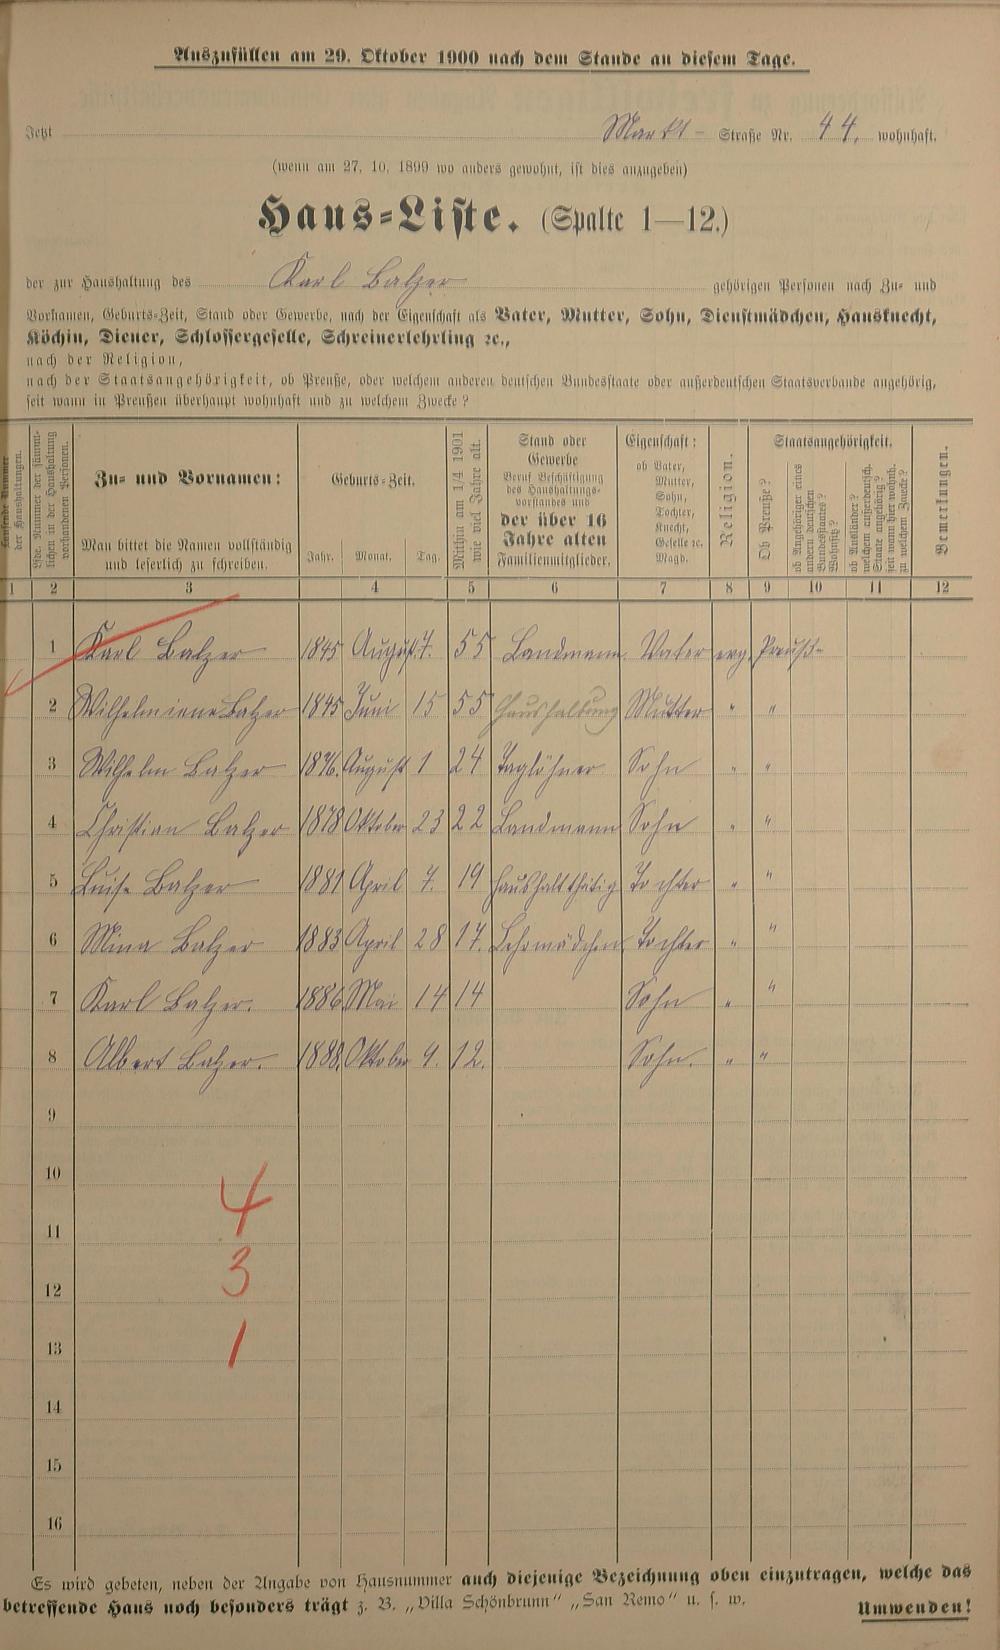 Auszufüllen am 29. Oktober 1900 nach dem Stande an diesem Tage.
Jetzt Markt- Straße Nr. 44. wohnhaft.
(wenn am 27. 10. 1899 wo anders gewohnt, ist dies anzugeben)
Haus-Liste. (Spalte 1—12.)
der zur Haushaltung des Karl Balzer gehörigen Personen nach Zu- und
Vornamen, Geburts-Zeit, Stand oder Gewerbe, nach der Eigenschaft als Vater, Mutter, Sohn, Dienstmädchen, Hausknecht,
Köchin, Diener, Schlossergeselle, Schreinerlehrling ꝛc.,
nach der Religion,
nach der Staatsangehörigkeit, ob Preuße, oder welchem anderen deutschen Bundesstaate oder außerdeutschen Staatsverbande angehörig,
seit wann in Preußen überhaupt wohnhaft und zu welchem Zwecke?
Laufende Nummer
der Haushaltungen.
Lfde. Nummer der sämmt-
lichen in der Haushaltung
vorhandenen Personen.
Zu- und Vornamen:
Man bittet die Namen vollständig
und leserlich zu schreiben.
Geburts-Zeit.
Jahr. Monat. Tag.
Mithin am 1/4 1901
wie viel Jahre alt.
Stand oder
Gewerbe
Beruf Beschäftigung
des Haushaltungs-
vorstandes und
der über 16
Jahre alten
Familienmitglieder.
Eigenschaft:
ob Vater,
Mutter,
Sohn,
Tochter,
Knecht,
Geselle ꝛc.
Magd.
Religion.
Staatsangehörigkeit.
Ob Preuße?
ob Angehöriger eines
andern deutschen
Bundesstaates?
Wohnsitz?
ob Ausländer?
welchem außerdeutsch.
Staate angehörig?
seit wann hier wohnh.
zu welchem Zwecke?
Bemerkungen.
1 2 3 4 5 6 7 8 9 10 11 12
1 Karl Balzer 1845 August 7. 55 Landmann. Vater evg. Preuß-
2 Wilhelmiene Balzer 1845 Juni 15 55 Haushaltung Mutter " "
3 Wilhelm Balzer 1876. August 1 24 Taglöhner Sohn " "
4 Christian Balzer 1878 Oktober 23 22 Landmann Sohn " "
5 Luise Balzer 1881 April 7. 19 haushaltthätig Tochter " "
6 Mina Balzer 1883 April 28 17. Lehrmädchen Tochter " "
7 Karl Balzer. 1886 Mai 14 14 Sohn " "
8 Albert Balzer. 1888. Oktober 9. 12. Sohn. " "
9
10
4
11
3
12
1
13
14
15
16
Es wird gebeten, neben der Angabe von Hausnummer auch diejenige Bezeichnung oben einzutragen, welche das
betreffende Haus noch besonders trägt z. B. „Villa Schönbrunn" „San Remo" u. s. w.
Umwenden!